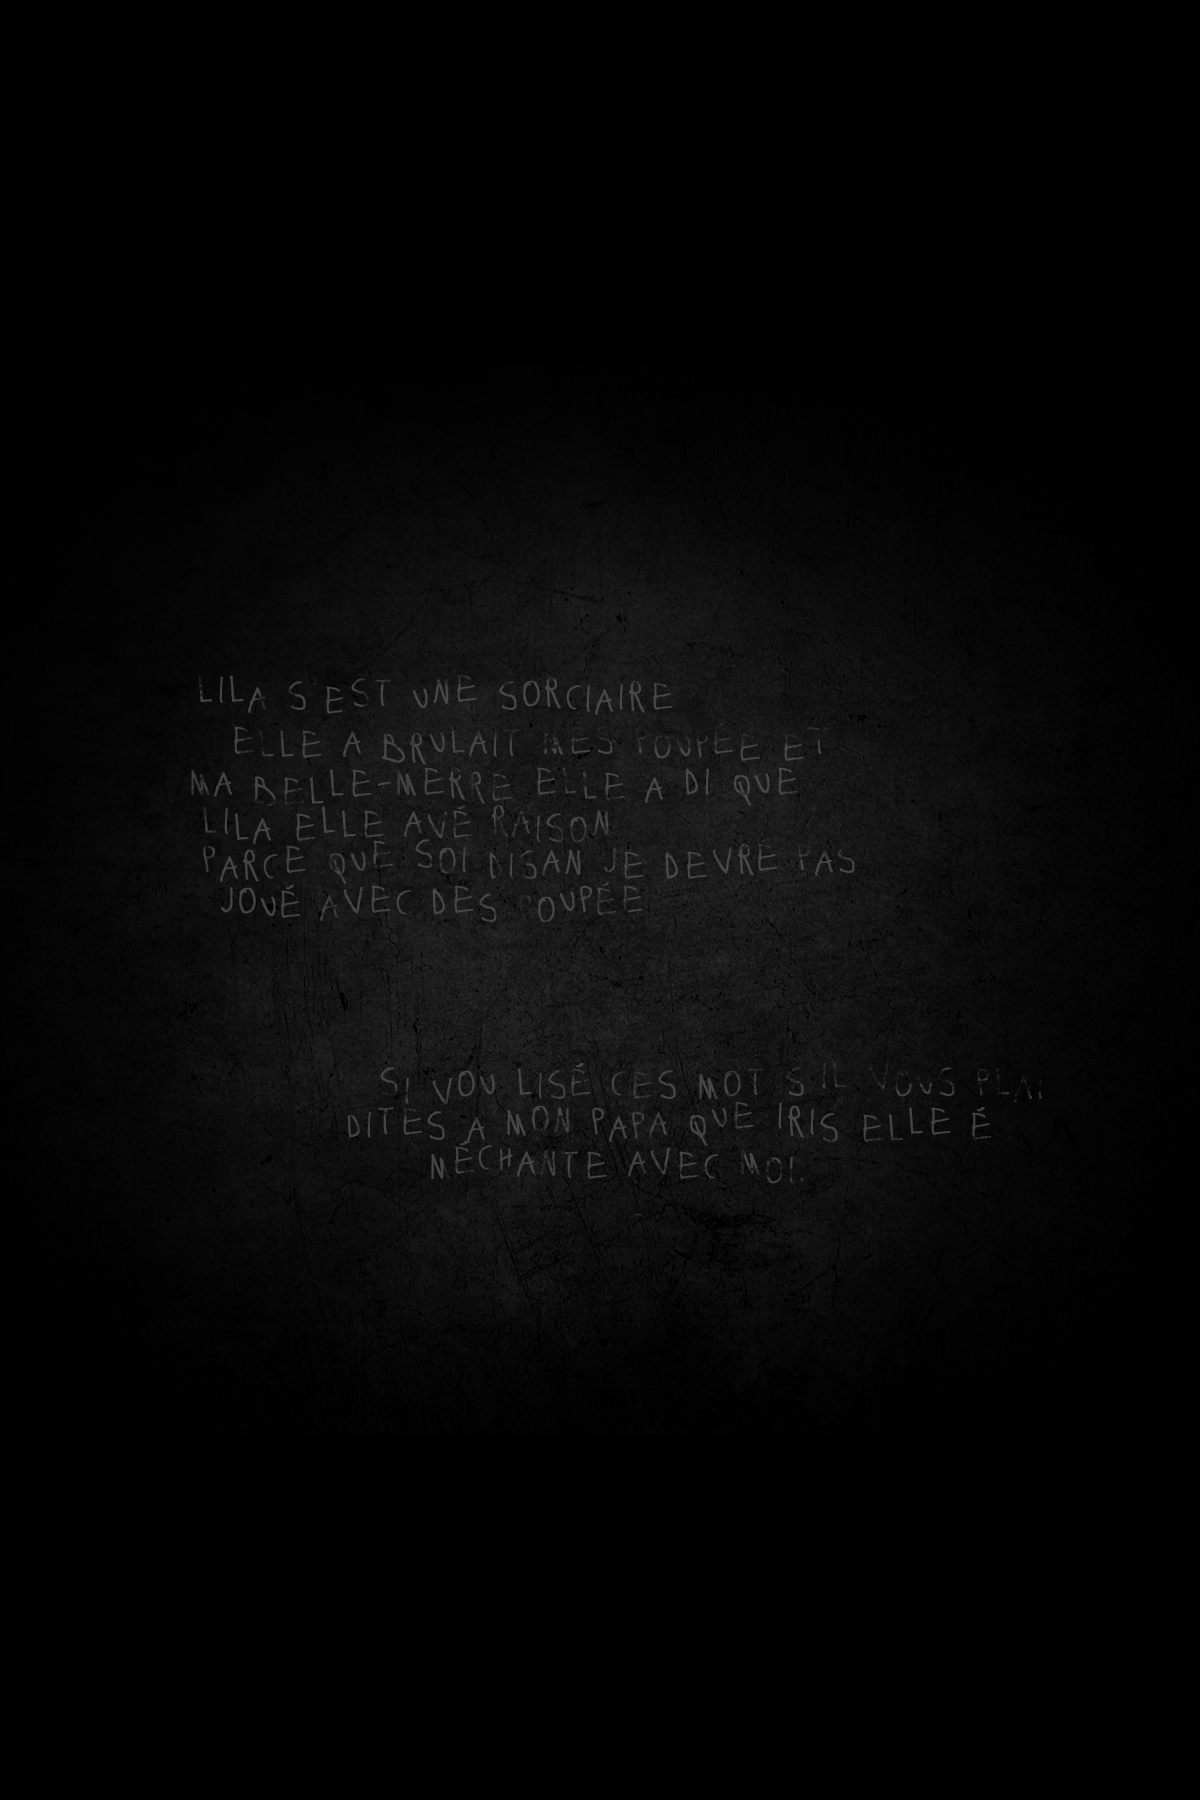 LILA S'EST UNE SORCIAIRE
ELLE A BRULAIT MES POUPÉE ET
MA BELLE-MERRE ELLE A DI QUE
LILA ELLE AVÉ RAISON
PARCE QUE SOI DISAN JE DEVRÉ PAS
JOUÉ AVEC DES POUPÉE
SI VOU LISÉ CES MOT S'IL VOUS PLAI
DITES A MON PAPA QUE IRIS ELLE É
MÉCHANTE AVEC MOI.